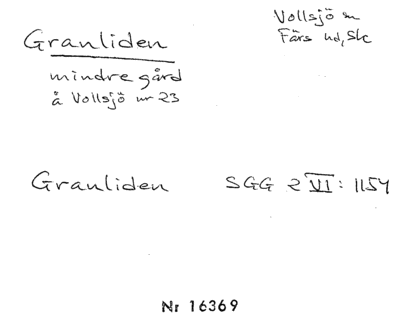 Granliden
Vollsjö sn
Färs hd, Sk
mindre gård
å Vollsjö nr 23
Granliden SGG 2 VI: 1154
Nr 16369